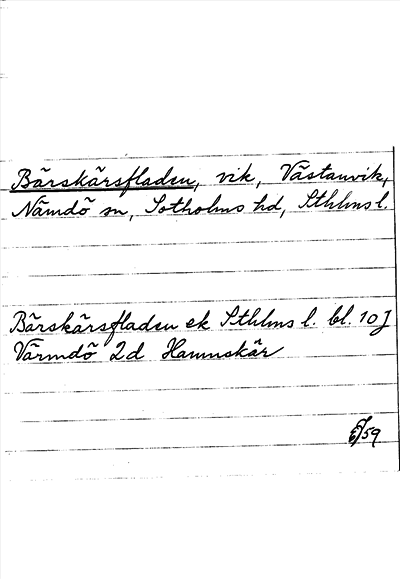 Bärskärsfladen, vik, Västanvik,
Nämdö sn, Sotholms hd, Sthlms l.
Bärskärsfladen ek Sthlms l. bl. 10J
Värmdö 2d Hamnskär
59